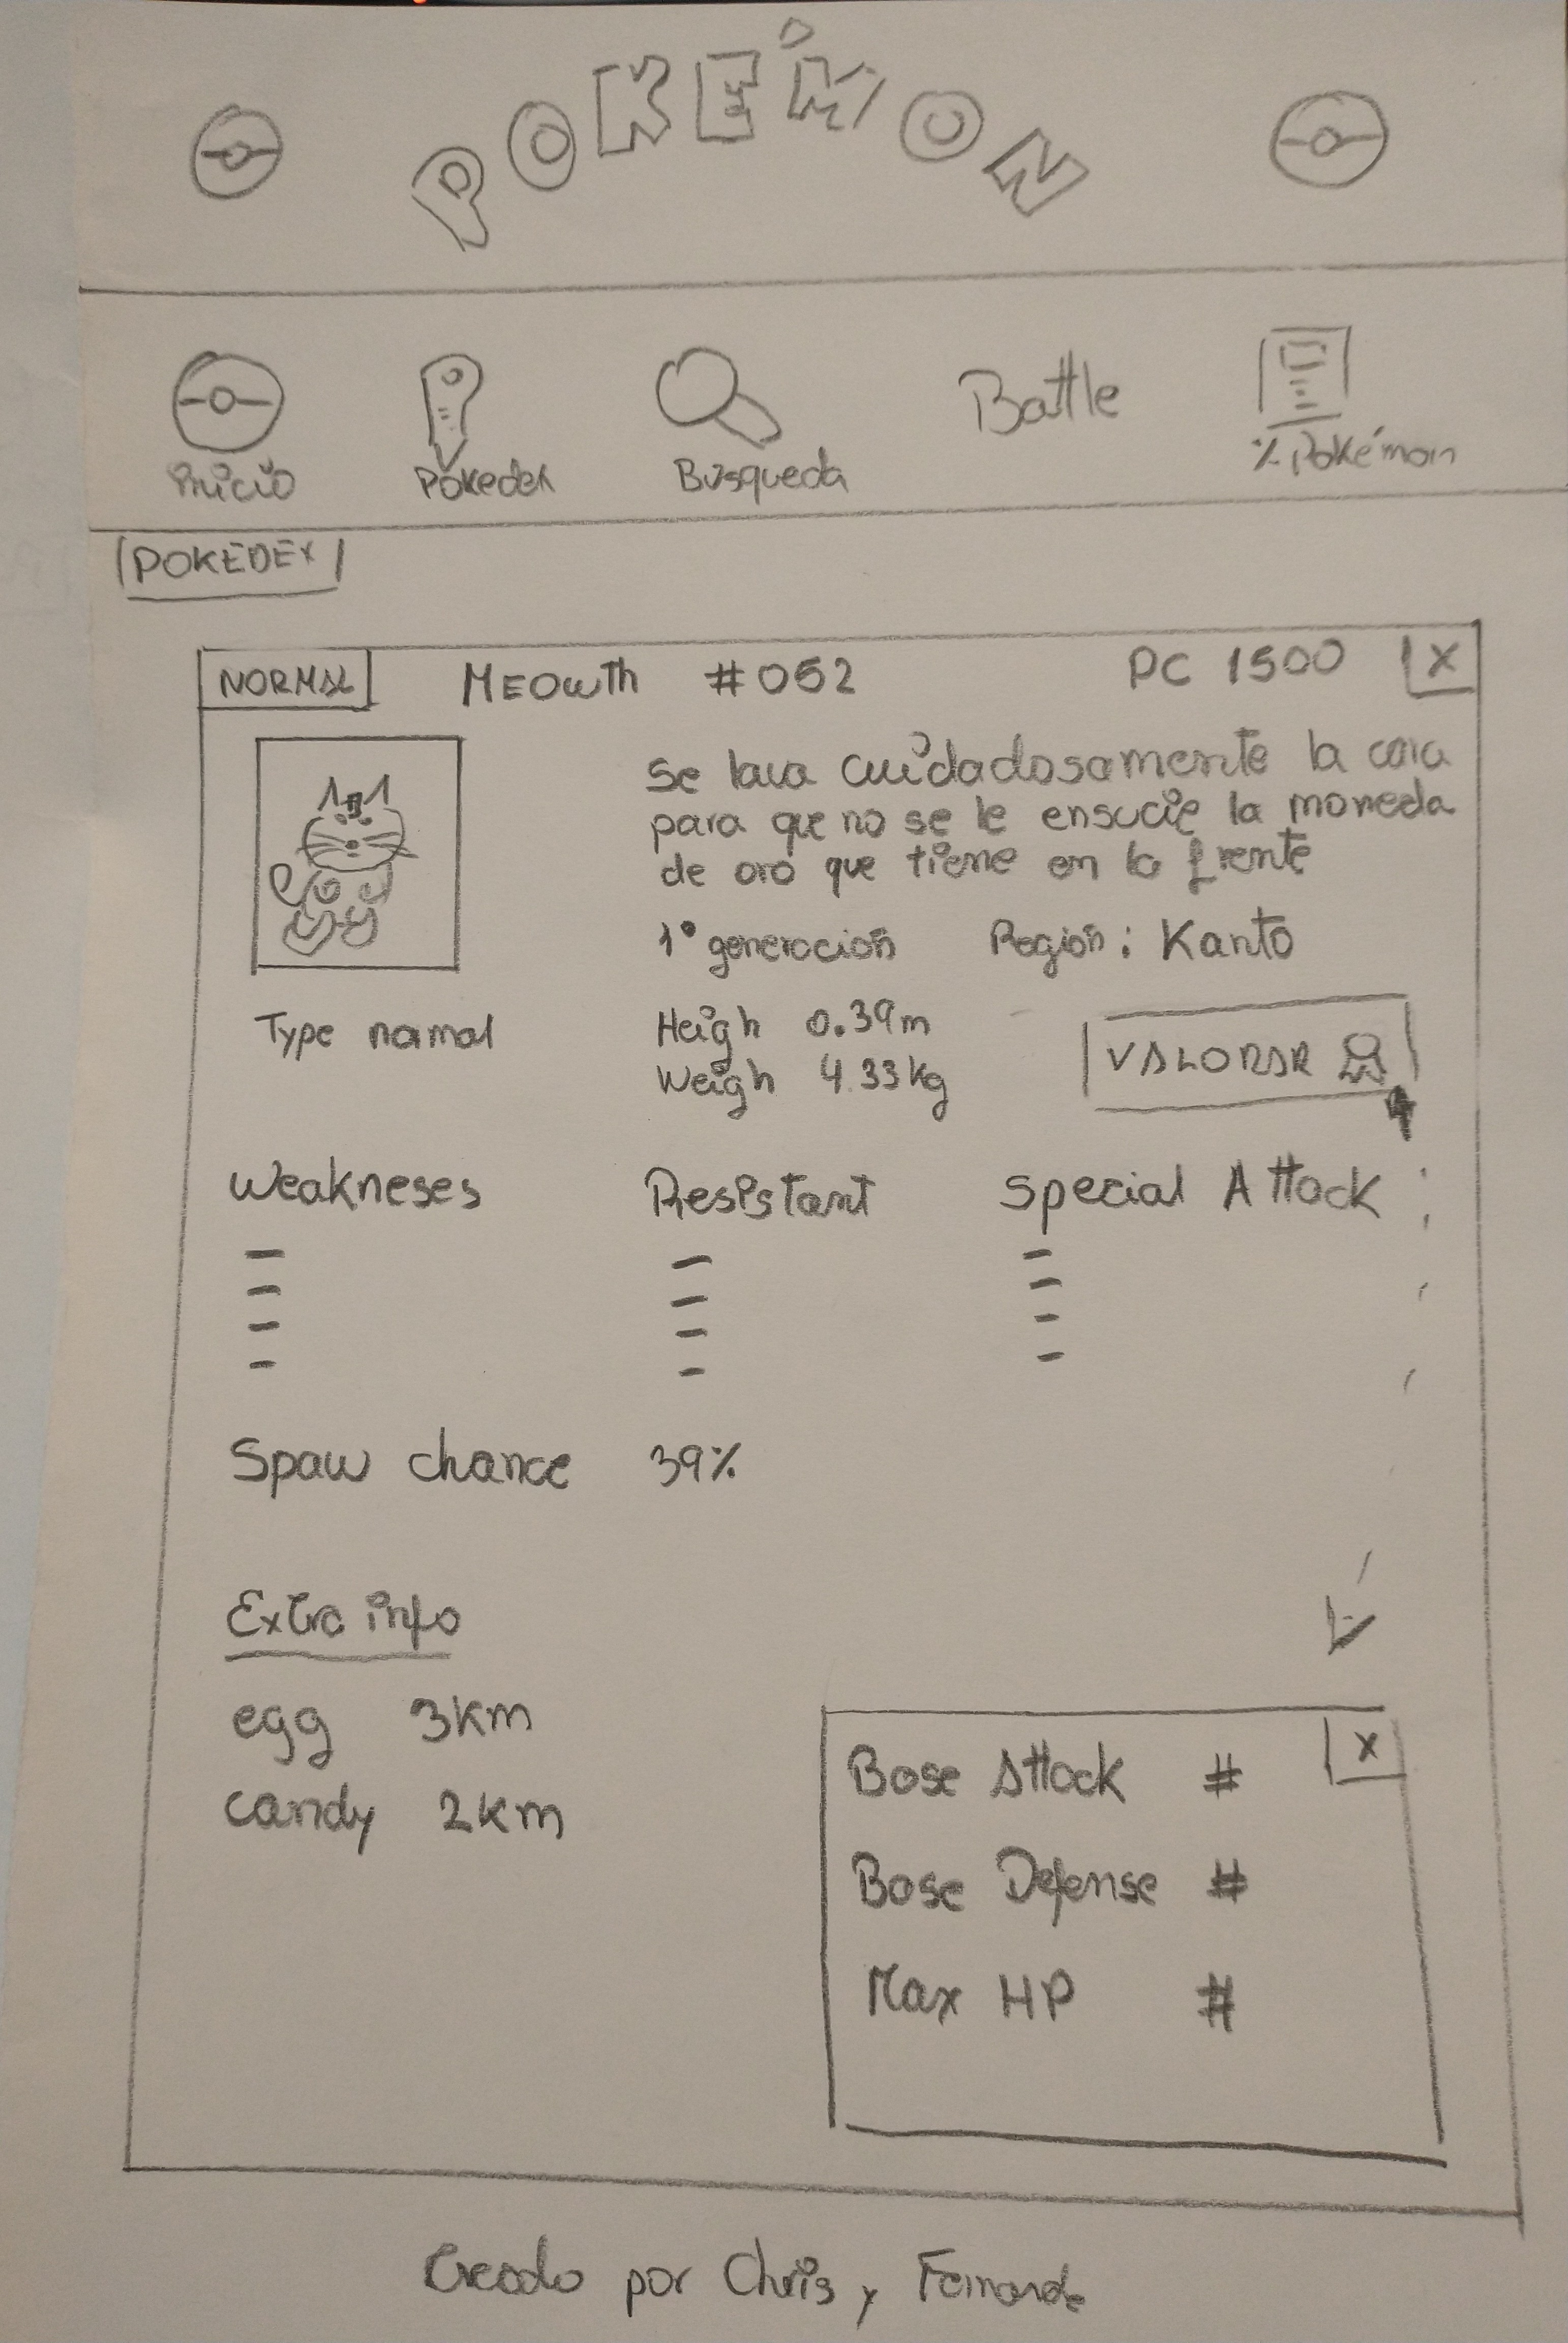 POKÉMON
Inicio Pokedex Búsqueda Battle % Pokémon
POKEDEX
NORMAL MEOWTH #052 PC 1500 X
Se lava cuidadosamente la cara
para que no se le ensucie la moneda
de oro que tiene en la frente
1º generación Región: Kanto
Type normal Heigh 0.39m
Weigh 4.33kg VALORAR
Weakneses Resistant Special Attack
Spaw chance 39%
Extra info
egg 3km
candy 2km
X
Base Attack #
Base Defense #
Max HP #
Creado por Chris y Fernanda